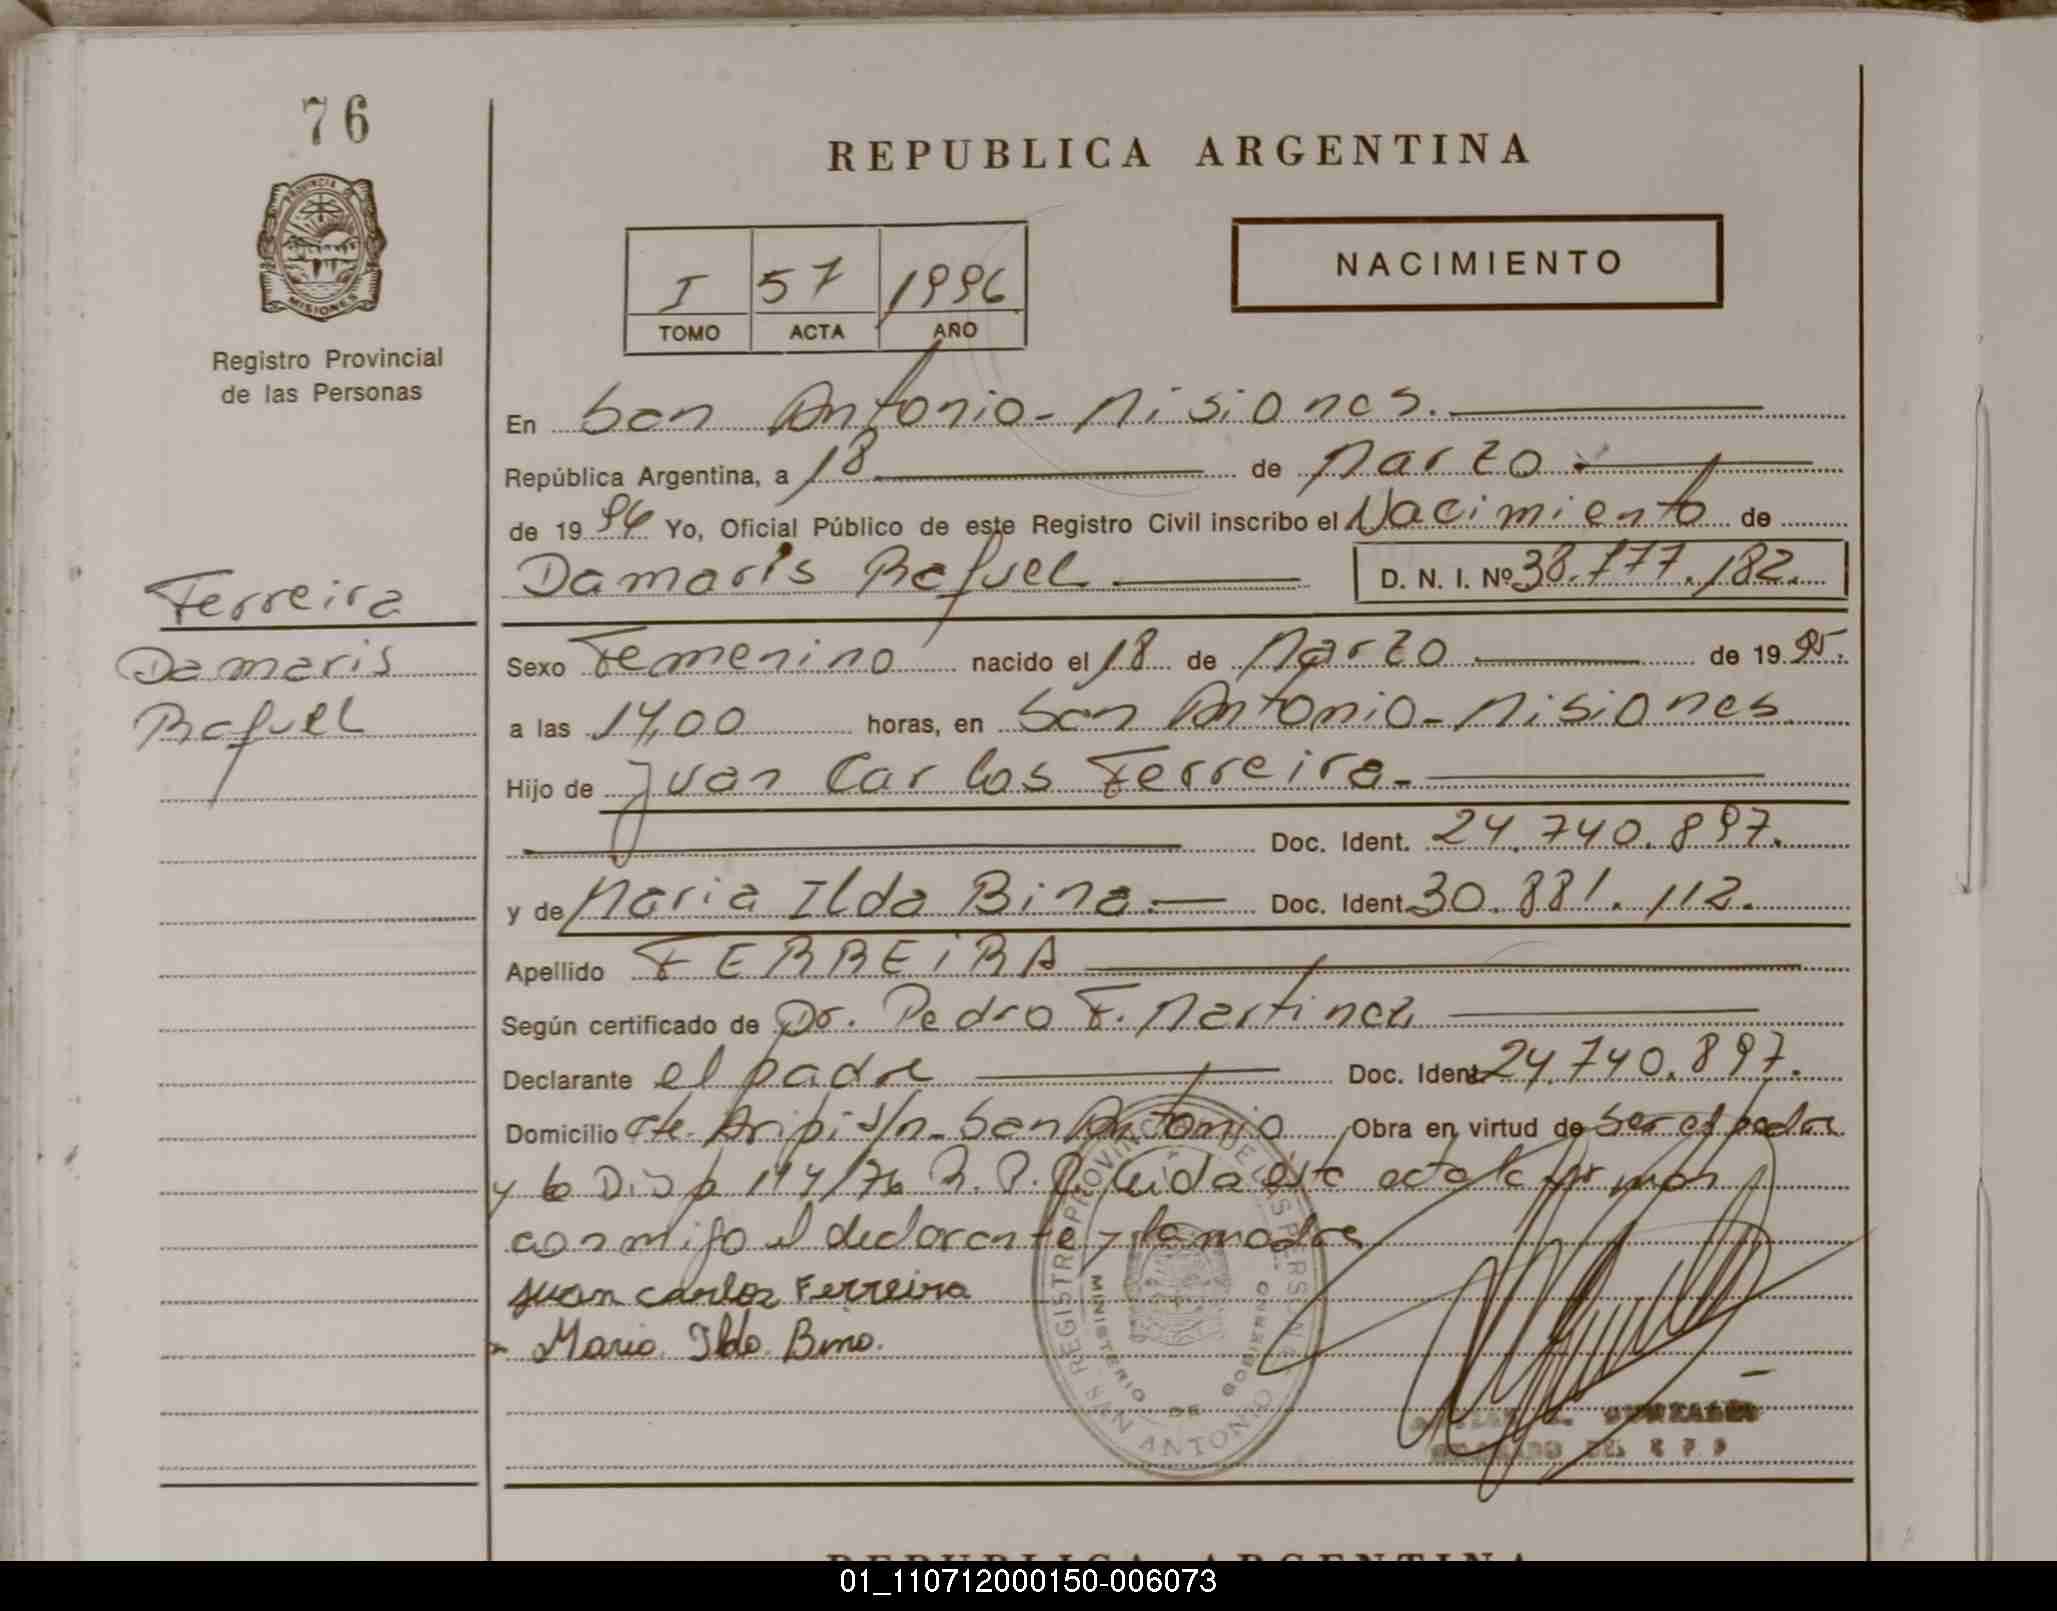 76
REPUBLICA ARGENTINA
PROVINCIA DE
MISIONES
Registro Provincial
de las Personas
NACIMIENTO
I 57 1996
TOMO ACTA AÑO
En San Antonio - Misiones.
República Argentina, a 18 de Marzo
de 1996 Yo, Oficial Público de este Registro Civil inscribo el Nacimiento de
Damaris Rafuel D. N. I. Nº 38.777.182.
Ferreira
Damaris
Rafuel
Sexo Femenino nacido el 18 de Marzo de 1995.
a las 14,00 horas, en San Antonio - Misiones
Hijo de Juan Carlos Ferreira -
Doc. Ident. 24.740.897.
y de Maria Ilda Bina. Doc. Ident. 30.881.112.
Apellido FERREIRA
Según certificado de Dr. Pedro F. Martinez
Declarante el padre Doc. Ident. 24.740.897.
Domicilio s/n - San Antonio Obra en virtud de ser el padre
y la Disp 114/76 R. P. P. Leida esta acta la firman
conmigo el declarante y la madre
Juan Carlos Ferreira
Maria Ilda Bina.
REGISTRO PROVINCIAL DE LAS PERSONAS
MINISTERIO DE GOBIERNO
SAN ANTONIO
GONZALEZ
REPUBLICA ARGENTINA
01_110712000150-006073